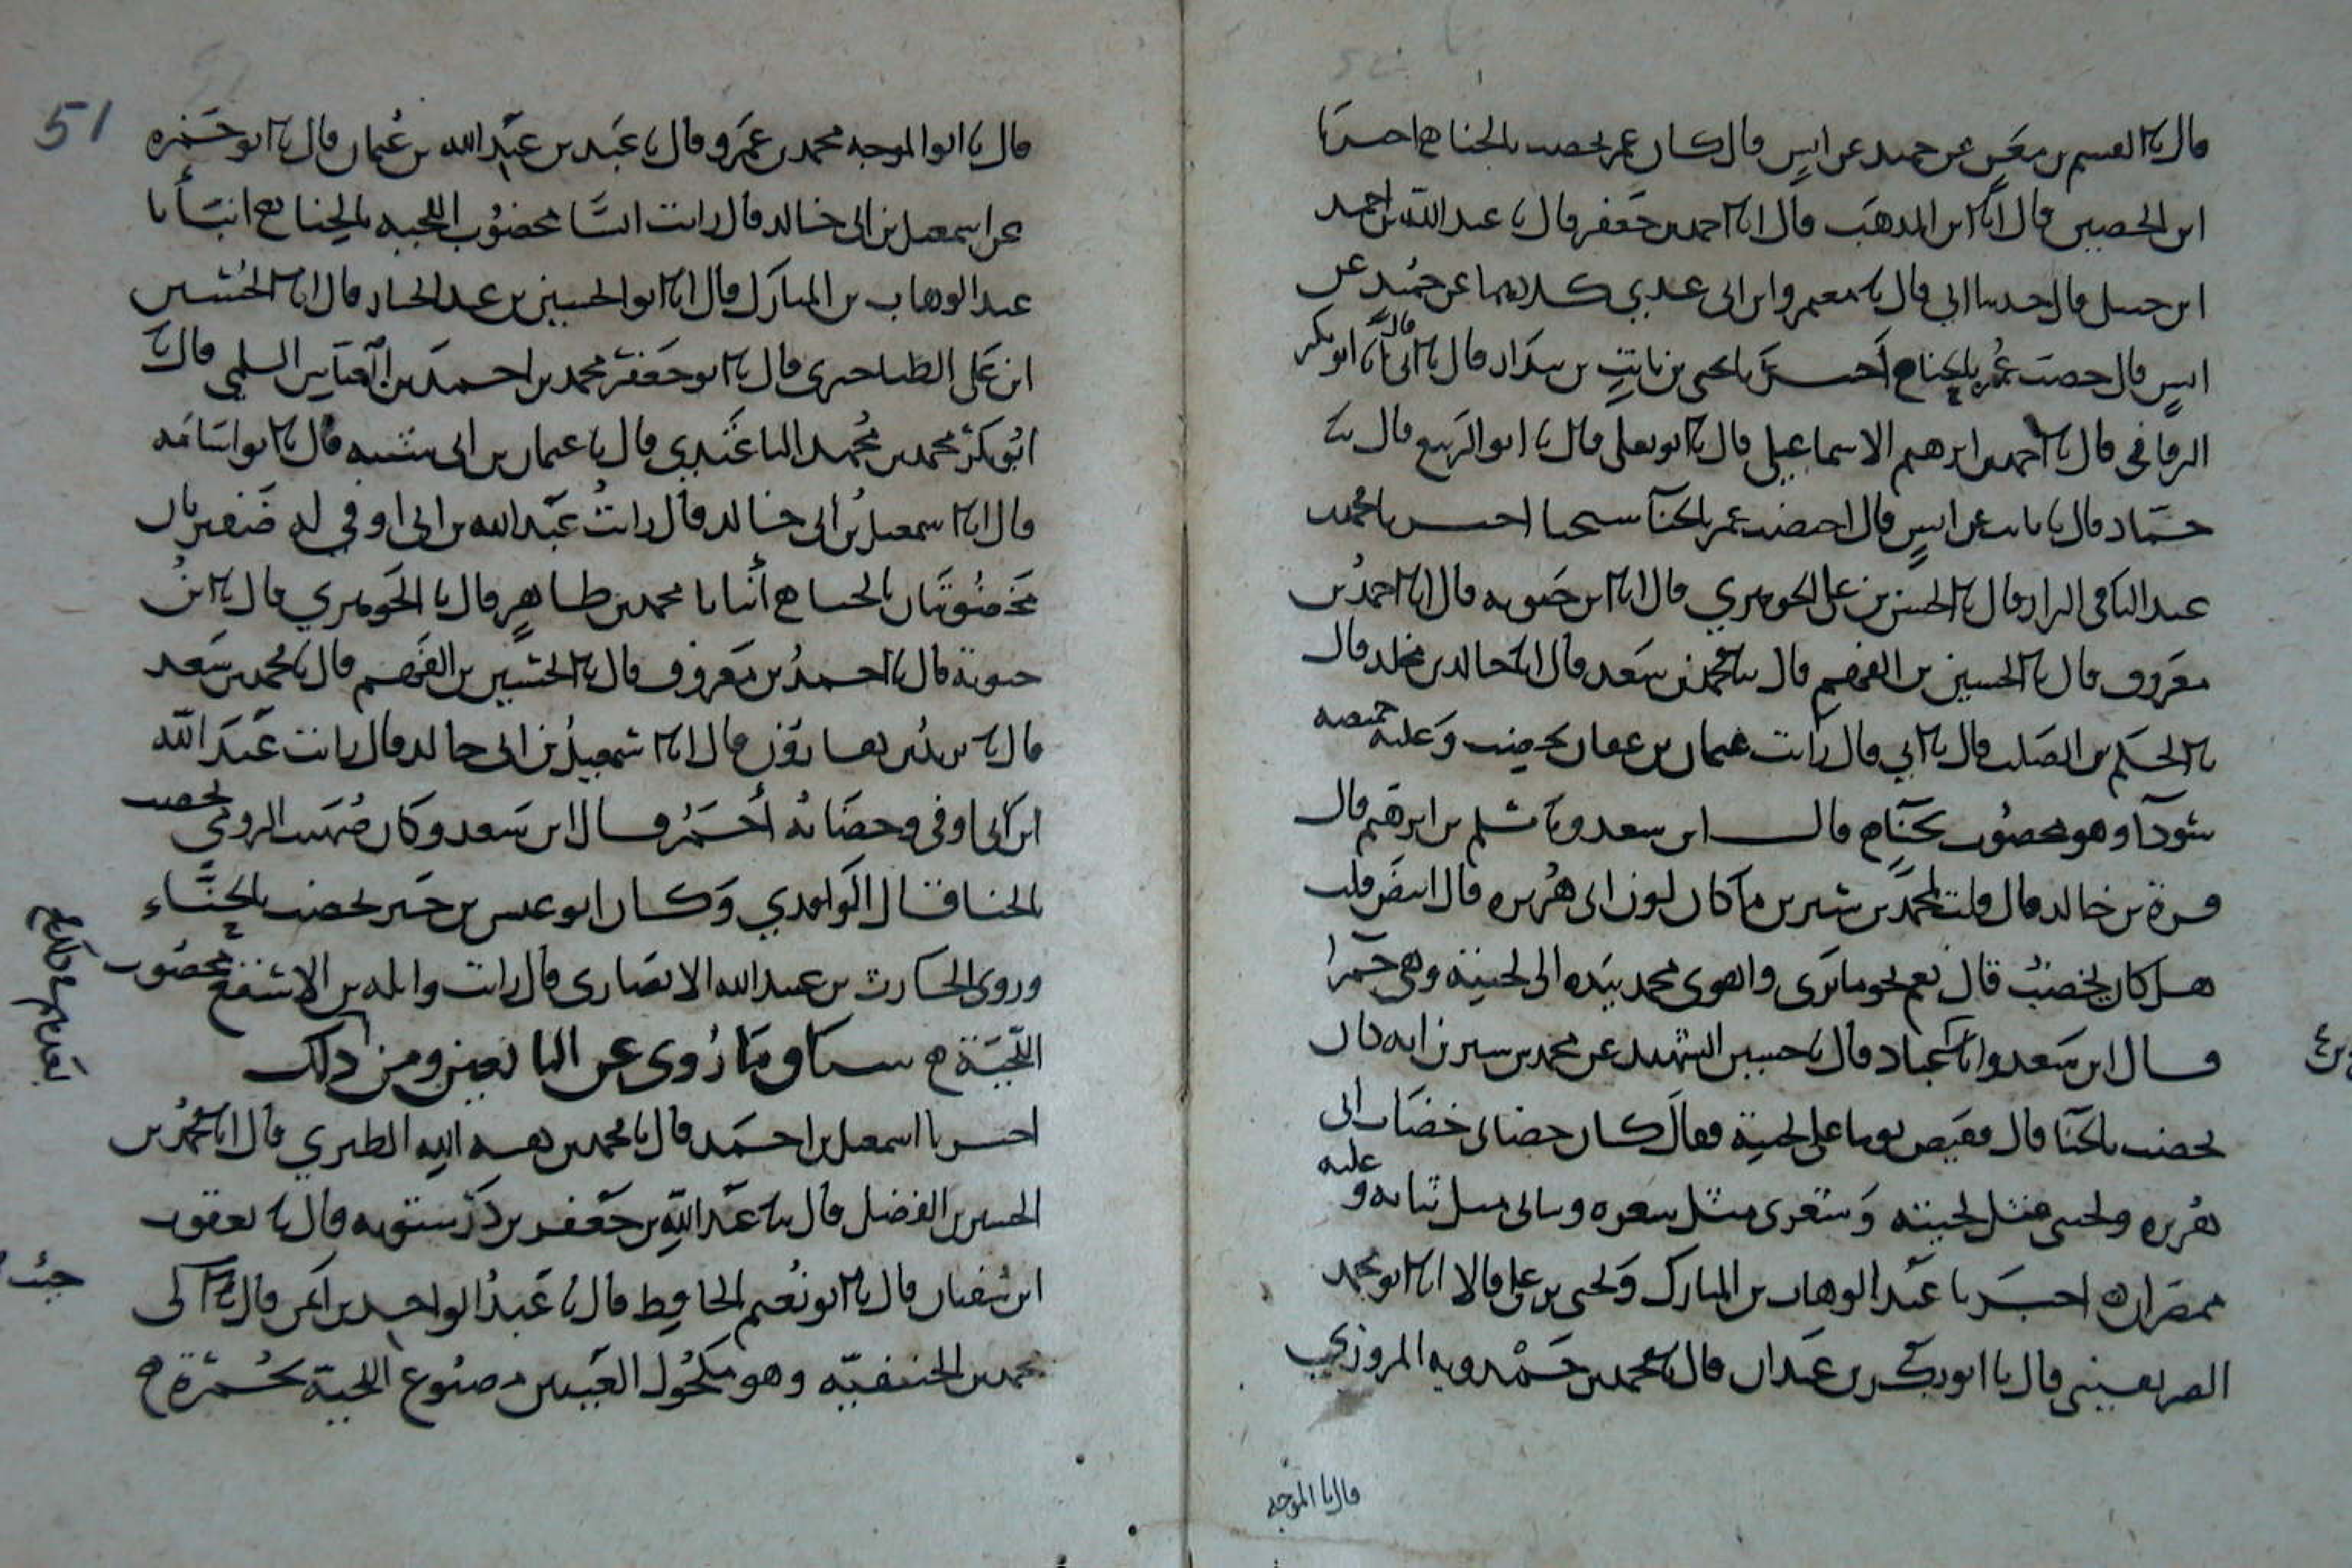 قال ثنا القسم بن معن عن حميد عن انس قال كان عمر يخضب بالحنا ه اخبرنا
ابن الحصين قال انا ابن المذهب قال انا احمد بن جعفر قال ثنا عبد الله بن احمد
ابن حنبل قال حدثنا ابي قال ثنا معمر وابن ابي عدي كلاهما عن حميد عن
انس قال خضب عمر بالحناء ه اخبرنا يحيى بن ثابت بن بندار قال ثنا ابي قال انا ابو بكر
البرقاني قال ثنا احمد بن ابرهيم الاسماعيلي قال ثنا ابو يعلى قال ثنا ابو الربيع قال ثنا
حماد قال ثنا ثابت عن انس قال اختضب عمر بالحنآ بحتا اخبرنا محمد بن
عبد الباقي البزاز قال ثنا الحسن بن علي الجوهري قال انا ابن حيويه قال انا احمد بن
معروف قال ثنا الحسين بن الفهم قال ثنا محمد بن سعد قال انا خالد بن مخلد قال
ثنا الحكم بن الصلت قال ثنا ابي قال رايت عثمان بن عفان يخطب وعليه خميصه
سودآ وهو مخضوب بحنآء قال ابن سعد وثنا مسلم بن ابرهيم قال
قرة بن خالد قال قلت لمحمد بن سيرين ما كان لون ابي هريره قال ابيض قلت
هل كان يخضب قال نعم نحو ما ترى واهوى محمد بيده الى لحيته وهي حمرا
قال ابن سعد وانا عباد قال ثنا حبيب الشهيد عن محمد بن سيرين انه كان
يخضب بالحنا قال فقبض يوما على لحيته فقال كان خضابي خضاب ابي
هريره ولحيتي مثل لحيته وشعري مثل شعره وثيابي مثل ثيابه وعليه
ممصران ه اخبرنا عبد الوهاب بن المبارك ويحيى بن علي قالا انا ابو محمد
الصريفيني قال ثنا ابو بكر بن عبدان قال ثنا محمد بن حمدويه المروزي
قال ثنا الموجه
51
قال ثنا ابو الموجه محمد بن عمرو قال ثنا عبد بن عبد الله بن عثمان قال ثنا ابو حمزه
عن اسمعيل بن ابي خالد قال رايت انسا مخضوب اللحيه بالحنا ه انبأنا
عبد الوهاب بن المبارك قال انا ابو الحسين بن عبد الجبار قال انا الحسين
ابن علي الطناجيري قال ثنا ابو جعفر محمد بن احمد بن العباس السلمي قال ثنا
ابو بكر محمد بن محمد الباغندي قال ثنا عثمان بن ابي شيبه قال ثنا ابو اسامه
قال انا اسمعيل بن ابي خالد قال رايت عبد الله بن ابي اوفى له ضفيرتان
مخضوبتان بالحنا ه أنبانا محمد بن طاهر قال ثنا الجوهري قال ثنا ابن
حيويه قال ثنا احمد بن معروف قال ثنا الحسين بن الفهم قال ثنا محمد بن سعد
قال ثنا يزيد بن هارون قال انا اسمعيل بن ابي خالد قال رايت عبد الله
ابن ابي اوفى وخضابه أحمر قال ابن سعد وكان صهيب الرومي يخضب
بالحنا قال الواقدي وكان ابو عبس بن جبر يخضب بالحناء
وروى الحارث بن عبد الله الانصارى قال رايت واثله بن الاسقع مخضوب
اللحية ه سياق ما روى عن التابعين ومن ذلك
اخبرنا اسمعيل بن احمد قال ثنا محمد بن هبه الله الطبري قال انا محمد بن
الحسين بن الفضل قال ثنا عبد الله بن جعفر بن درستويه قال ثنا يعقوب
ابن سفيان قال ثنا ابو نعيم الحافظ قال ثنا عبد الواحد بن ايمن قال ثنا
محمد بن الحنفيه وهو مكحول العينين مصبوغ اللحية بحمرة ه